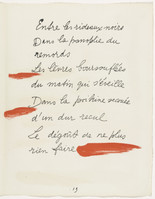 Entre les rideaux noirs
Dans la panoplie du
remords
Les lèvres boursouflées
du matin qui s'éveille
Dans la poitrine
d'un dur recul
Le dégoût de ne plus
rien faire